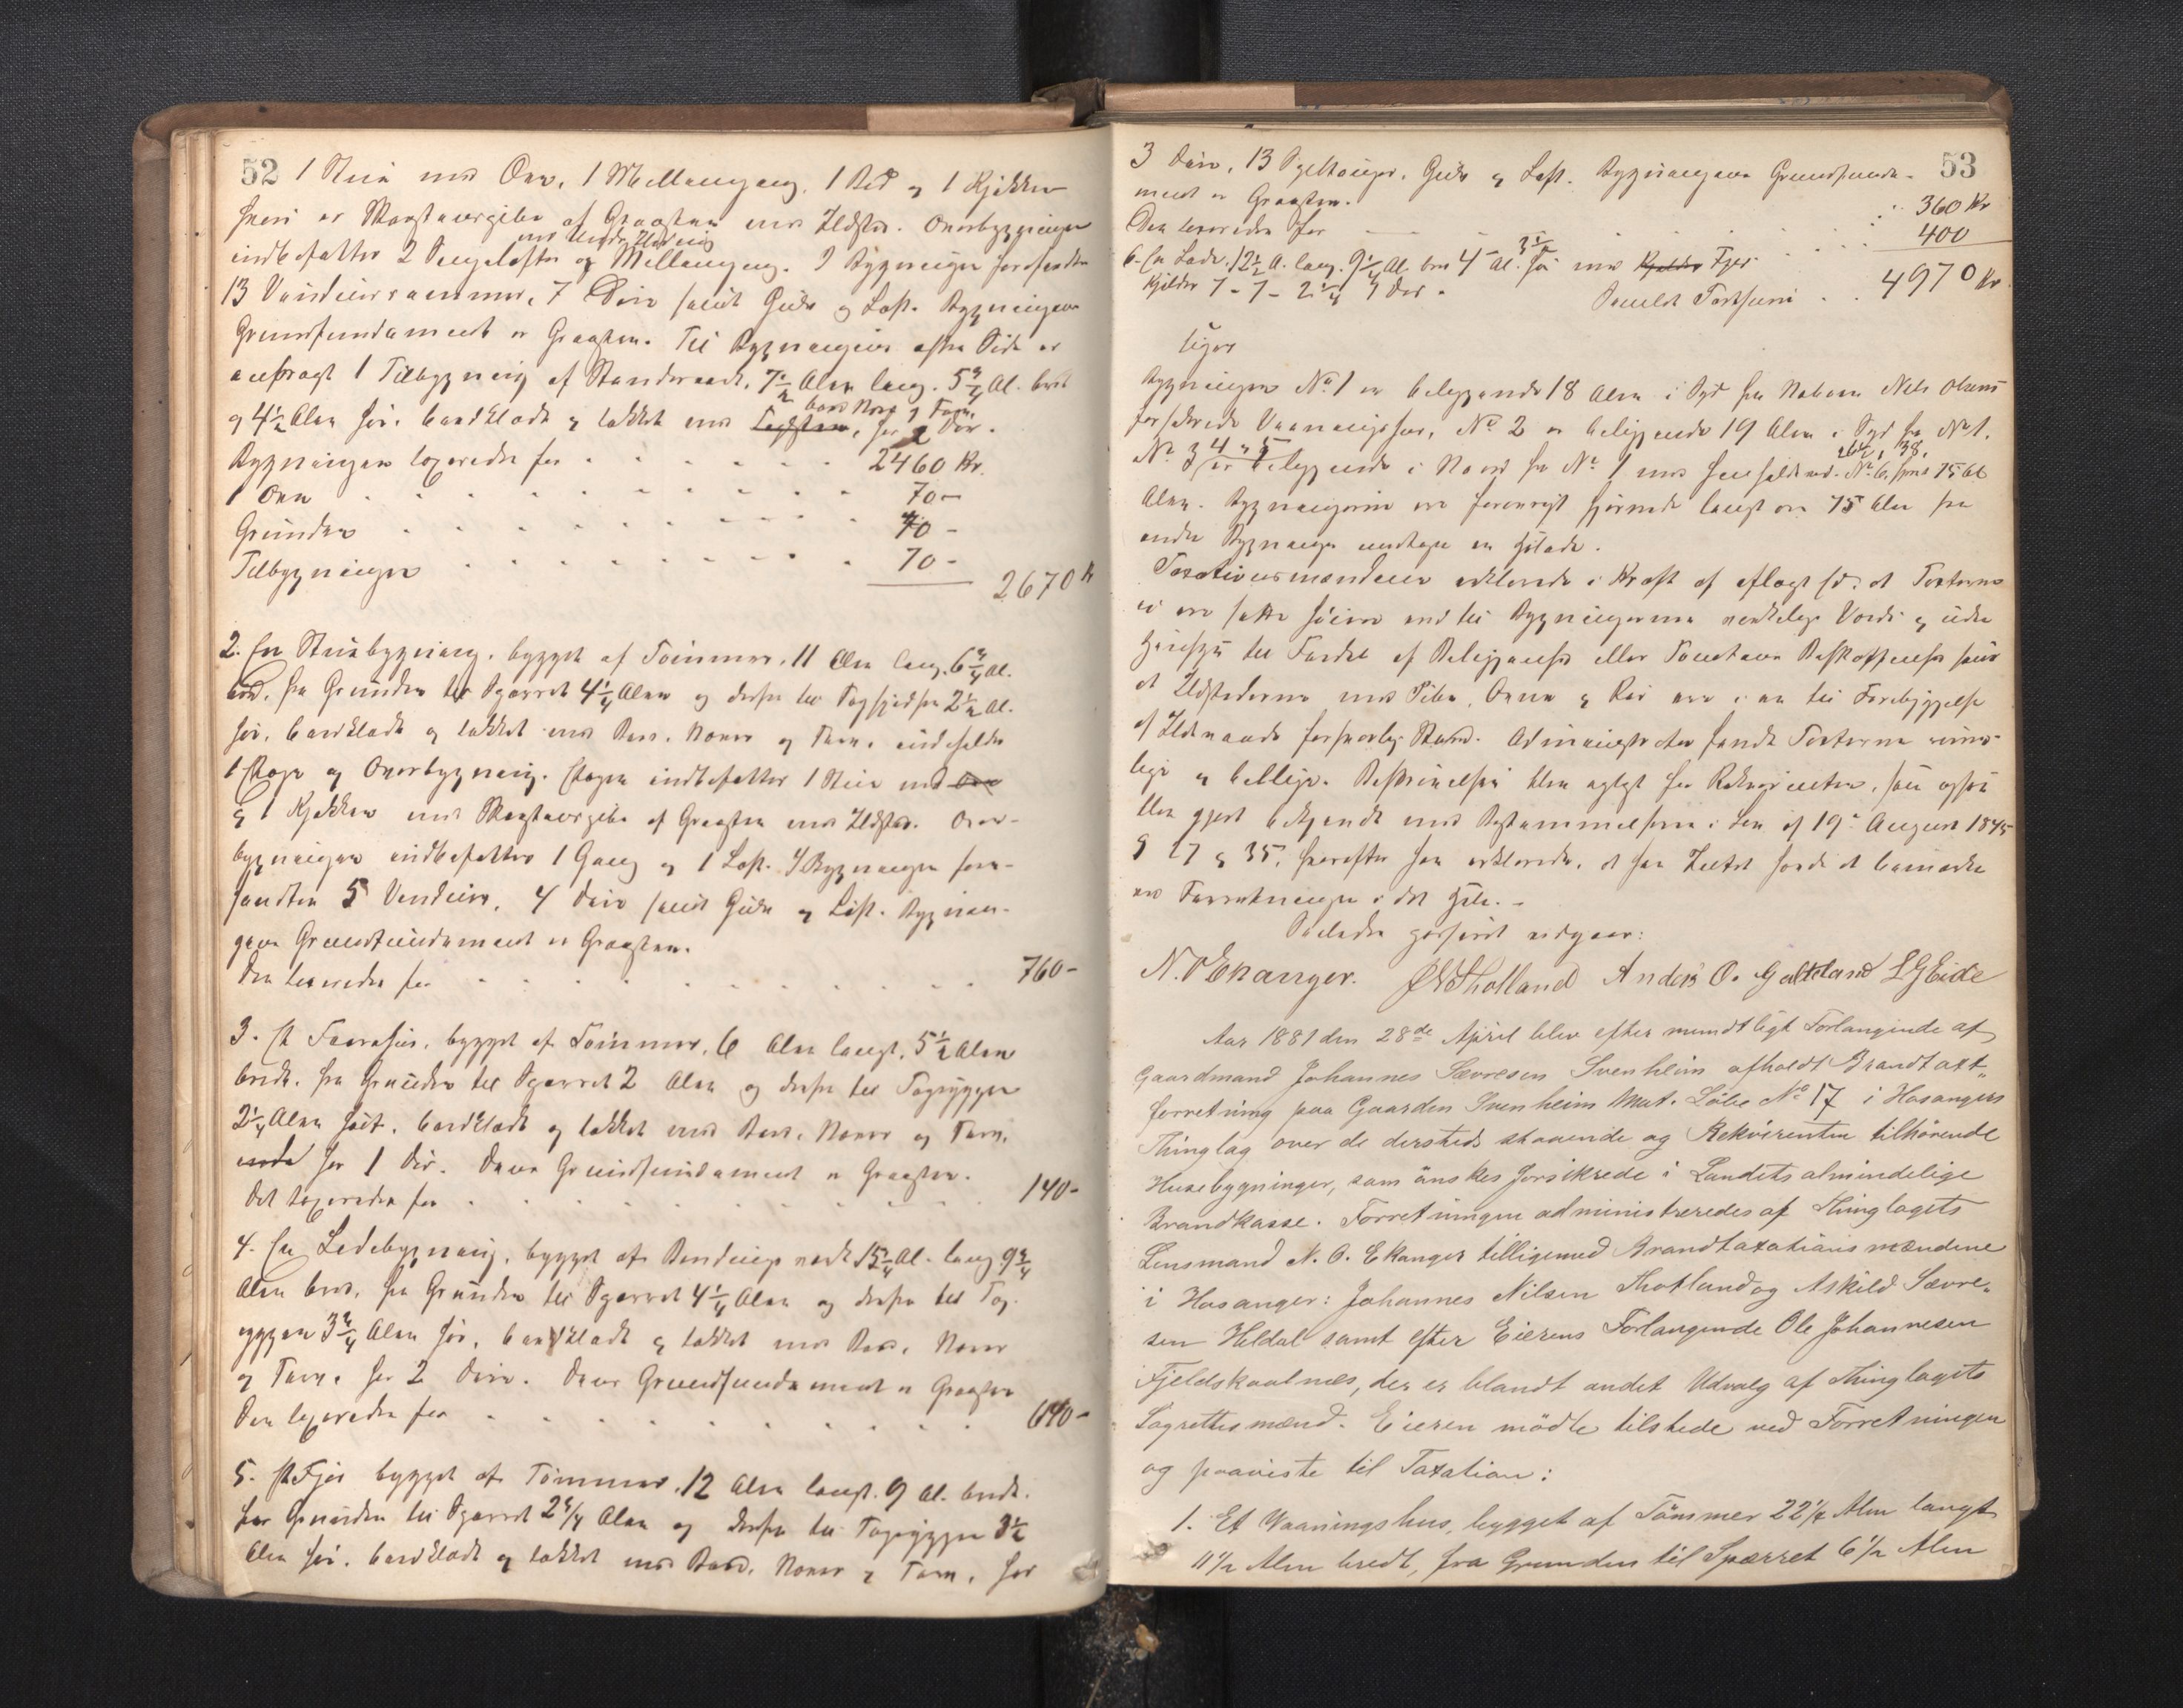 52
1 Stue med Ovn, 1 Mellemgang, 1 Bod og 1 Kjøkken
hvori er Skorstenspibe af Graasten med Ildsted. Overbygningen
med Udklædning
indbefatter 2 Sengelofter og Mellemgang. I Bygningen forefindes
13 Vinduesrammer, 7 Døre samt Gulv og Loft. Bygningens
Grundfundament er Graasten. Til Bygningens østre Side er
anbragt 1 Tilbygning af Standerværk, 7 1/2 Alen lang, 5 3/4 Al. bred
og 4 1/2 Alen høi, bordklædt og tækket med har 2 Dør.
Bord Næver og Torv,
Bygningen taxeredes for 2460 Kr.
1 Ovn 70-
Grunden 70-
Tilbygningen 70-
2670 Kr
2. En Stuebygning, bygget af Tømmer, 11 Alen lang, 6 3/4 Al.
bred, fra Grunden til Sparret 4 1/4 Alen og derfra til 2 1/2 Al.
høi, bordklædt og tækket med Bord, Næver og Torv, indeholder
1 Etage og Overbygning. Etagen indbefatter 1 Stue med Ovn
og 1 Kjøkken med Skorstenspibe af Graasten med Ildsted. Over-
bygningen indbefatter 1 Gang og 1 Loft. I Bygningen fore-
findes 5 Vinduer, 4 Døre samt Gulv og Loft. Bygnin-
gens Grundfundament er Graasten.
Den taxeredes for 760-
3. Et bygget af Tømmer, 6 Alen langt, 5 1/2 Alen
bredt, fra Grunden til Sparret 2 Alen og derfra til Tagryggen
2 1/4 Alen høit, bordklædt og tækket med Bord, Næver og Torv,
har 1 Dør. Dens Grundfundament er Graasten.
Det taxeredes for 140-
4. En Ladebygning, bygget af 15 1/4 Al. lang 9 3/4
Alen bred, fra Grunden til Sparret 4 1/4 Alen og derfra til Tag-
ryggen 3 3/4 Alen høi, bordklædt og tækket med Bord, Næver
og Torv, har 2 Døre. Dens Grundfundament er Graasten
Den taxeredes for 640-
5. Et Fjøs bygget af Tømmer, 12 Alen langt, 9 Al. bredt,
fra Grunden til Sparret 2 3/4 Alen og derfra til Tagryggen 3 1/2
Alen høi, bordklædt og tækket med Bord, Næver og Torv, har
53
3 Døre, 13 Gulv og Loft. Bygningens Grundfunda-
ment er Graasten.
Den taxeredes for 360 Kr
6. En Lade, 12 1/2 A. lang, 9 1/4 Al. bred 4 Al. høi med Kjelder 400
Kjelder 7 - 7 - 2 1/4 1 Dør - Samlet Taxtsum 4970 Kr.
Bygningen No 1 er beliggende 18 Alen i Syd fra Naboen Nels Olsens
forsikrede Vaaningshus, No 2 er beliggende 19 Alen i Syd fra No 1.
No 3 4 og 5 er beliggende i Nord fra No 1 med henholdsvis 38, No 6,
Alen. Bygningerne ere forøvrigt fjernede langt over 75 Alen fra
andre Bygninger undtagen en
Taxationsmændene erklærede i Kraft af aflagt Ed, at Taxterne
ei ere satte høiere end til Bygningernes virkelige Værdi og uden
Hensyn til Fordel af Beliggenhed eller Tomtens Beskaffenhed samt
at Ildstederne med Piber, Ovne og Rør ere i en til Forebyggelse
af Ildsvaade forsvarlig Stand. Administrator fandt Taxterne rime-
lige og billige. Beskrivelsen blev oplæst for Rekvirenten, som ogsaa
blev gjort bekjendt med Bestemmelserne i Lov af 19de August 1845
§ 27 og 35, hvorefter han erklærede, at han Intet havde at bemærke
ved Forretningen i det Hele. -
Saaledes passeret vidgaar:
N. O Ekanger. JN Thotland Anders O. Galteland LGEide
Aar 1881 den 28de April blev efter mundtligt Forlangende af
Gaardmand Johannes Sævresen Svenheim afholdt Brandtaxt„
forretning paa Gaarden Svenheim Mat. Løbe No 17 i Hosangers
Thinglag over de dersteds staaende og Rekvirenten tilhørende
Husebygninger, som ønskes forsikrede i Landets almindelige
Brandkasse. Forretningen administreredes af Thinglagets
Lensmand N. O. Ekanger tilligemed Brandtaxationsmændene
i Hosanger: Johannes Nilsen Thotland og Askild Sævre„
sen Heldal samt efter Eierens Forlangende Ole Johannesen
Fjeldskaalnes, der er blandt andet Udvalg af Thinglagets
Lagrettesmænd. Eieren mødte tilstede ved Forretningen
og paaviste til Taxation:
1. Et Vaaningshus, bygget af Tømmer 22 1/4 Alen langt
11 1/2 Alen bredt, fra Grunden til Sparret 6 1/2 Alen